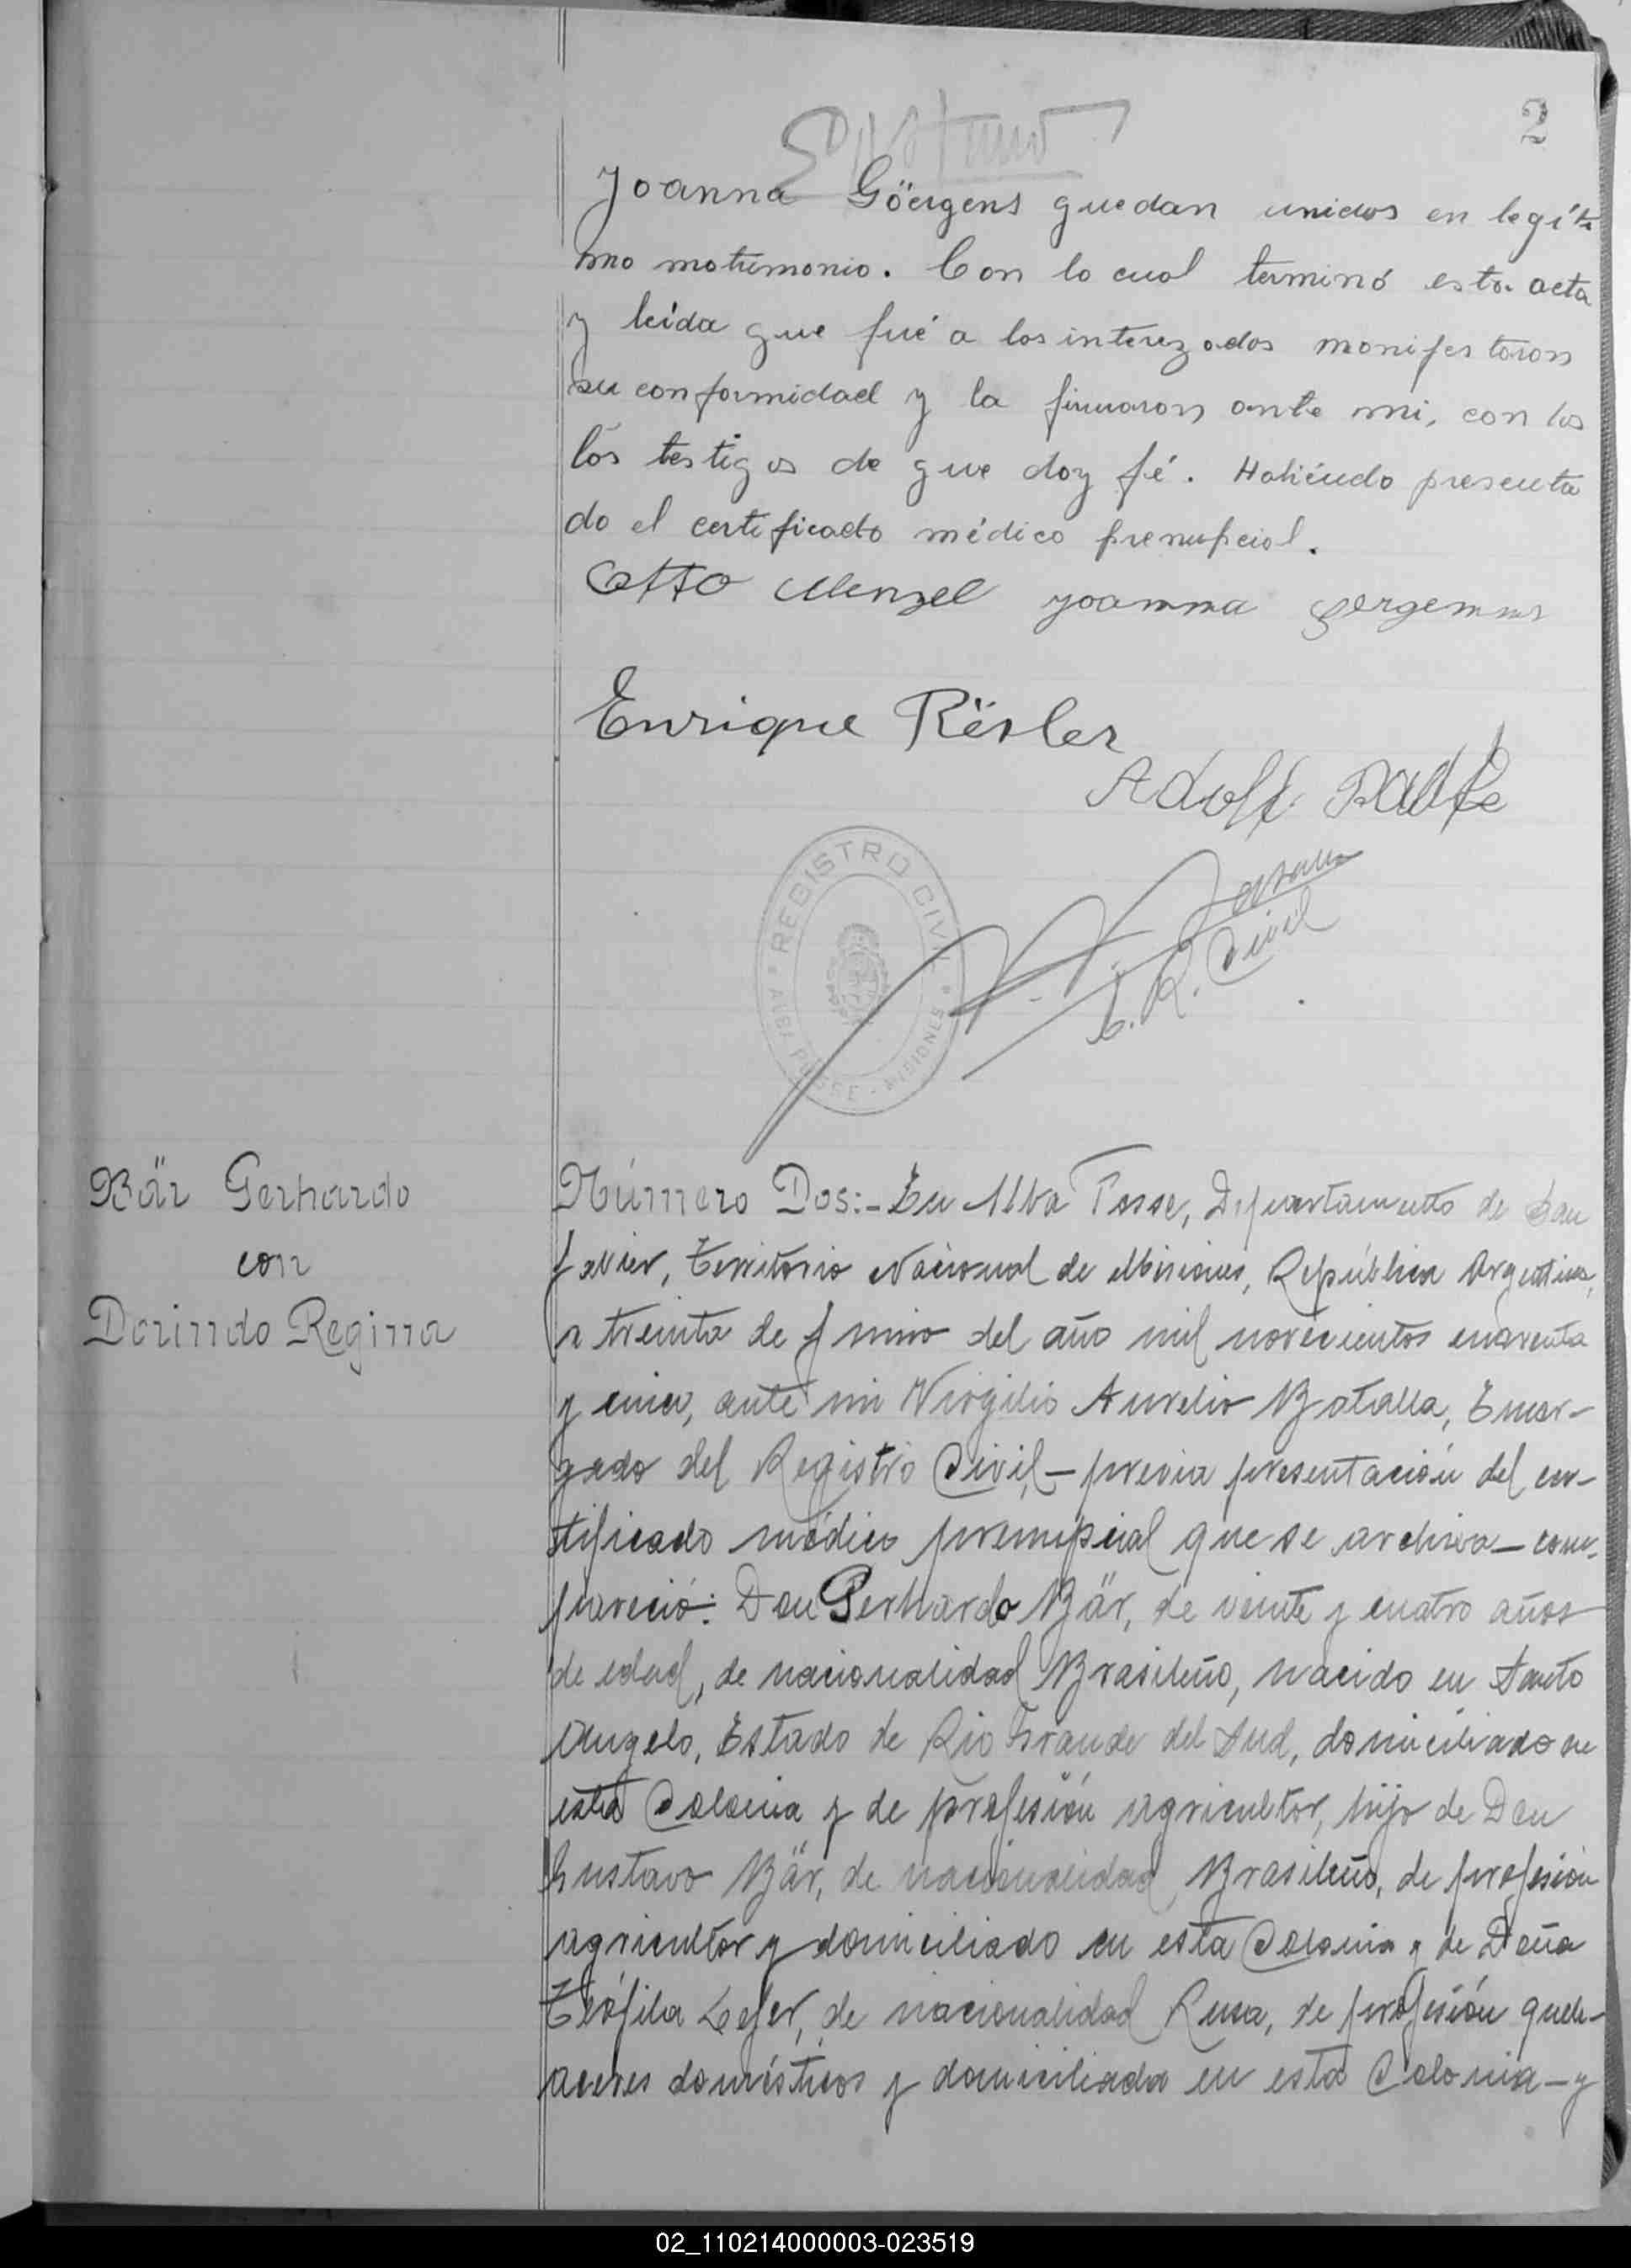 2
Joanna Göergens quedan unidos en legíti
mo matrimonio. Con lo cual terminó esta acta
y leída que fué a los interezados manifestaron
su conformidad y la firmaron ante mi, con los
los testigos de que doy fé. Habiéndo presenta
do el certificado médico prenupcial.
Otto Menzel Joanna Gergenns
Enrique Résler
Adolf
REGISTRO CIVIL
ALBA POSSE - MISIONES
E. R. Civil
Bär Gerhardo
con
Dorindo Regina
Número Dos:- En Alba Posse, Departamento de San
Javier, Territorio Nacional de Misiones, República Argentina,
a treinta de Junio del año mil novecientos cuarenta
y cinco, ante mi Virgilio Aurelio Botalla, Encar-
gado del Registro Civil,- previa presentación del cer-
tificado médico prenupcial que se archiva- com-
pareció: Don Gerhardo Bär, de veinte y cuatro años
de edad, de nacionalidad Brasileño, nacido en Santo
Angelo, Estado de Rio Grande del Sud, domiciliado en
esta Colonia y de profesión agricultor, hijo de Don
Gustavo Bär, de nacionalidad Brasileño, de profesión
agricultor y domiciliado en esta Colonia y de Doña
Teófila Lefer, de nacionalidad Rusa, de profesión queh-
aceres domésticos y domiciliada en esta Colonia-y
02_110214000003-023519